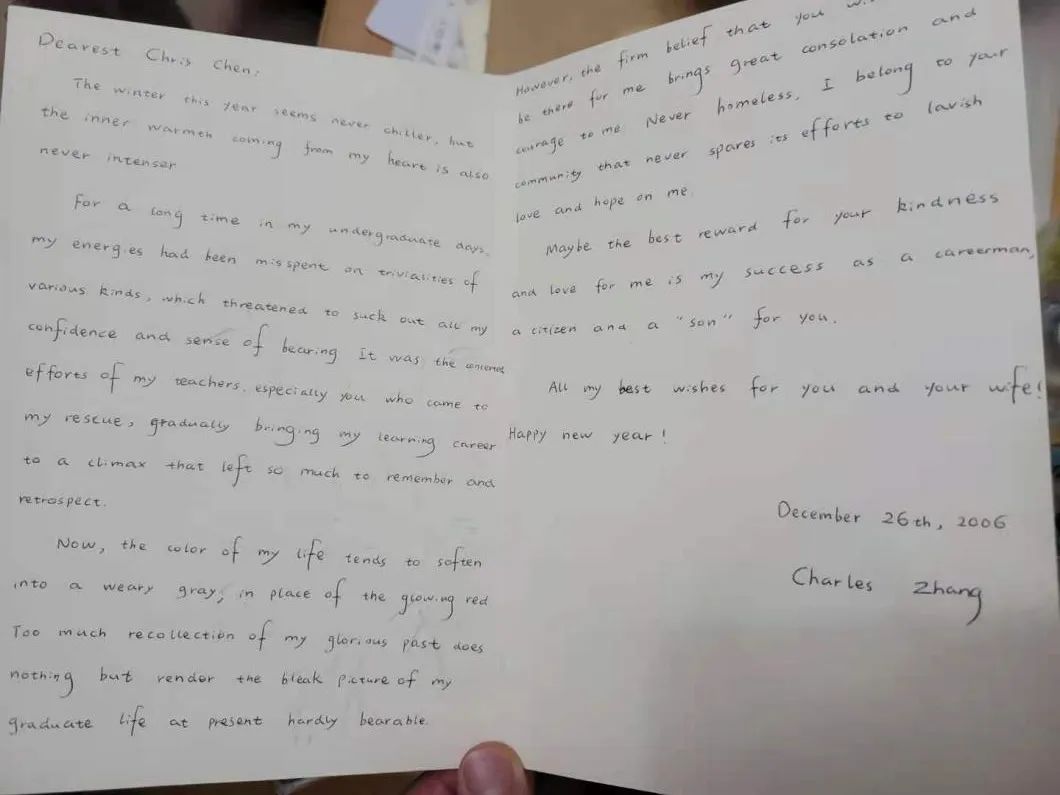 Dearest Chris Chen:
The winter this year seems never chiller, but
the inner warmth coming from my heart is also
never intenser
For a long time in my undergraduate days,
my energies had been misspent on trivialities of
various kinds, which threatened to suck out all my
confidence and sense of bearing It was the
efforts of my teachers, especially you who came to
my rescue, gradually bringing my learning career
to a climax that left so much to remember and
retrospect.
Now, the color of my life tends to soften
into a weary gray, in place of the glowing red
Too much recollection of my glorious past does
nothing but render the bleak picture of my
graduate life at present hardly bearable.
However, the firm belief that you
be there for me brings great consolation and
courage to me. Never homeless, I belong to your
community that never spares its efforts to lavish
love and hope on me.
Maybe the best reward for your kindness
and love for me is my success as a careerman,
a citizen and a "son" for you.
All my best wishes for you and your wife!
Happy new year!
December 26th, 2006
Charles Zhang